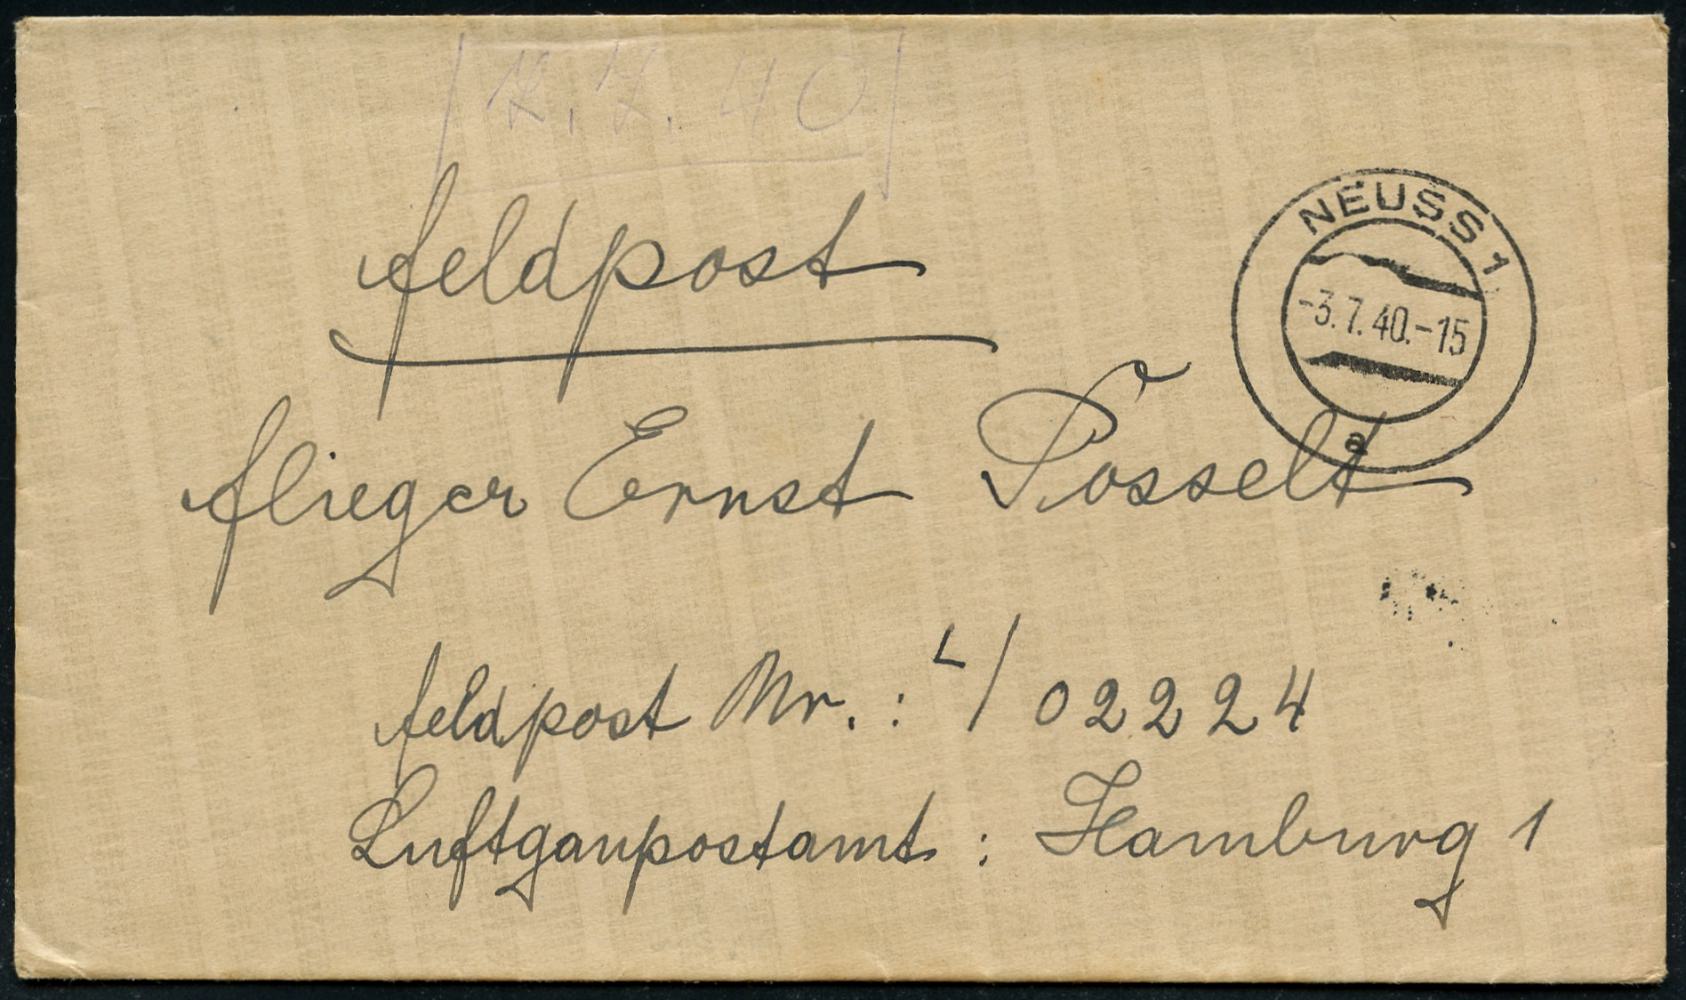 12.7.40
Feldpost
NEUSS 1
-3.7.40.-15
a
Flieger Ernst Posselt
Feldpost Nr.: L/ 02224
Luftgaupostamt: Hamburg 1